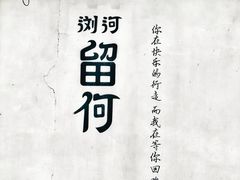 浏河
留何
你在快乐的行走 而我在等你回